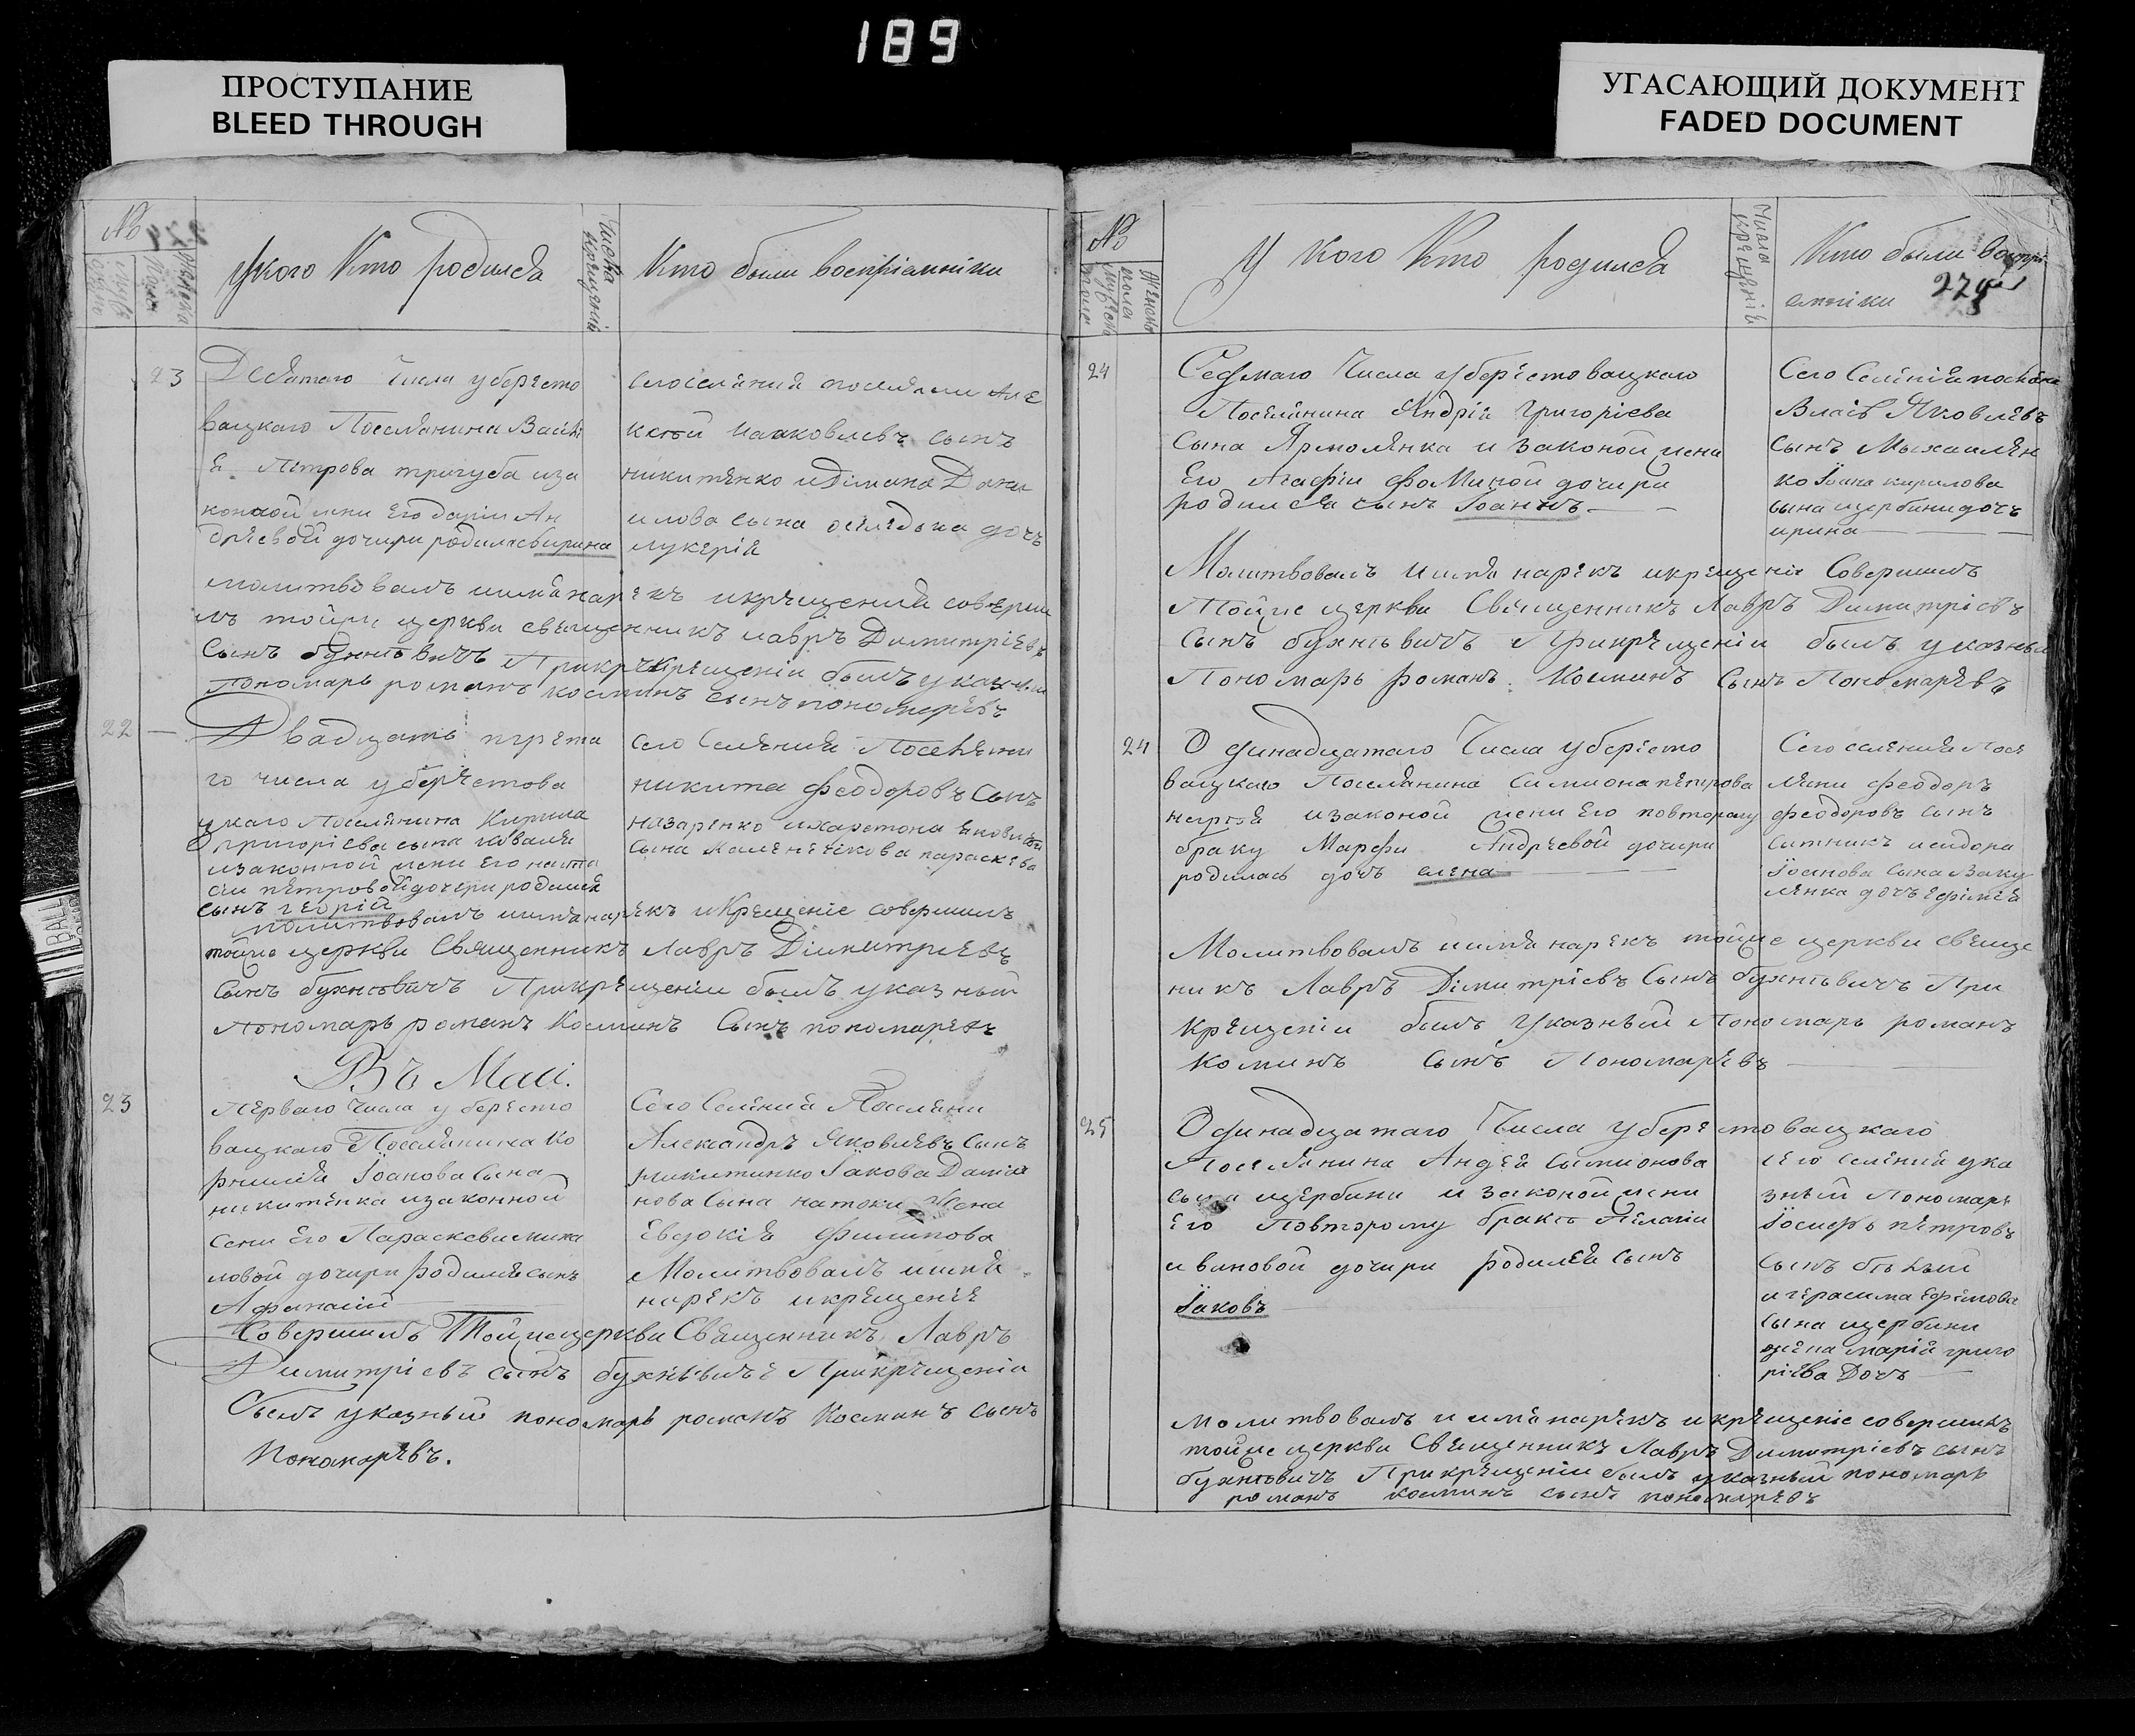 189
ПРОСТУПАНИЕ
BLEED THROUGH
УГАСАЮЩИЙ ДОКУМЕНТ
FADED DOCUMENT
№
Укого Кто родился
Числа
крещений
Кто были восприамники
23
Девятаго Числа убересто
вацкаго Поселянина Васил
Петрова тригуба иза
конной жени Его Дарiи Ан
дреевой дочири родилась ирина
никитенко
илова сына оселедька дочъ
лукерiя
молитвовалъ иимя нарекъ икрещения соверши
лъ тойже церкви священникъ лавръ Димитрiевъ
Сынъ Прикрещенiи былъ указный
Пономарь романъ косминъ сынъ пономаревъ
22
Двадцать
го числа уберестова
цкаго Поселянина Кирила
григорiева сына коваля
изаконной жени Его
петровой дочери родился
сынъ георгiй
Сего Селения Поселяни
никита феодоровъ Сынъ
назаренко ихаретона
сына параскева
молитвовалъ иимя нарекъ икрещение совершилъ
тойже церкви Священникъ Лавръ Дiмитрiевъ
Сынъ Прикрещенiи былъ указный
Пономарь романъ Косминъ Сынъ пономаревъ
Въ Маи.
23
Перваго числа у бересто
вацкаго Поселянина Ко
рнилiя Iоанова Сына
никитенка изаконной
жени Его Параскеви
ловой дочири родился сынъ
Афанасiй
Сего Селения Поселяни
Александръ Яковлевъ Сынъ
никитинко Iакова Дамiа
нова Сына Жена
Евдокiя Филипова
Молитвовалъ иимя
нарекъ икрещение
Совершилъ Тойжецеркви Священникъ Лавръ
Димитрiевъ сынъ Прикрещенiи
былъ указный пономарь романъ Косминъ сынъ
Пономаревъ.
№
У Кого Кто родился
Числа
крещенiй
Кто были воспрi
емники
24
Седмаго Числа уберестовацкаго
Поселянина Андрiя Григорiева
Сына Ярмоленка и законой жени
Его Агафiи фоминой дочири
родился сынъ Iоаннъ
Сего Селенiя
Власъ Яковлевъ
сынъ Михайлен
ко Iоана кирилова
сына щербини дочъ
ирина
Молитвовалъ Иимя нарекъ икрещенiе Совершилъ
Тойже церкви Священникъ Лавръ Димитрiевъ
Сынъ Прикрещенiи былъ указный
Пономарь романъ Косминъ Сынъ Пономаревъ
24
Одинадцатаго Числа убересто
вацкаго Поселянина Симиона петрова
изаконой жени Его повторому
браку Марфи Андреевой дочири
родилась дочъ елена
Сего селения Посе
ляни феодоръ
феодоровъ сынъ
ситникъ исидора
Iоанова Сына Ваку
ленка дочъ ефимiя
Молитвовалъ иимя нарекъ тойже церкви свяще
никъ Лавръ Дiмитрiевъ Сынъ При
Крещенiи былъ Указный Пономарь романъ
Косминъ Сынъ Пономаревъ
25
Одинадцатаго Числа уберестовацкаго
Поселянина Андрея Симионова
сына щербини изаконой жени
Его Повторому бракъ Пелагiи
ивановой дочири родился сынъ
Iаковъ
сего селения ука
зный Пономарь
Iосифъ петровъ
сынъ белый
игерасима Ефимова
сына щербини
жена марiя григо
рiева Дочъ
Молитвовалъ иимя нарекъ икрещенiе совершилъ
тойже церкви Священникъ Лавръ Димитрiевъ сынъ
Прикрещенiи былъ указный пономарь
романъ косминъ сынъ пономаревъ